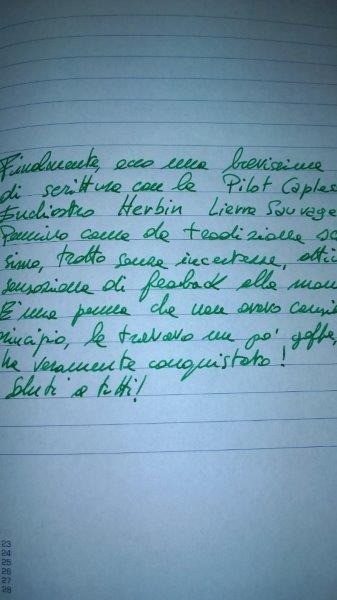 Finalmente, ecco una brevissima
di scrittura con la Pilot Caples
Inchiostro Herbin Lierre Sauvage
Pennino come da tradizione sc
simo, tratto senza incertezze, otti
sensazione di feedback alla man
È una penna che non avevo capi
rincipio, la trovavo un po' goffa,
ha veramente conquistato!
Saluti a tutti!
23
24
25
26
27
28